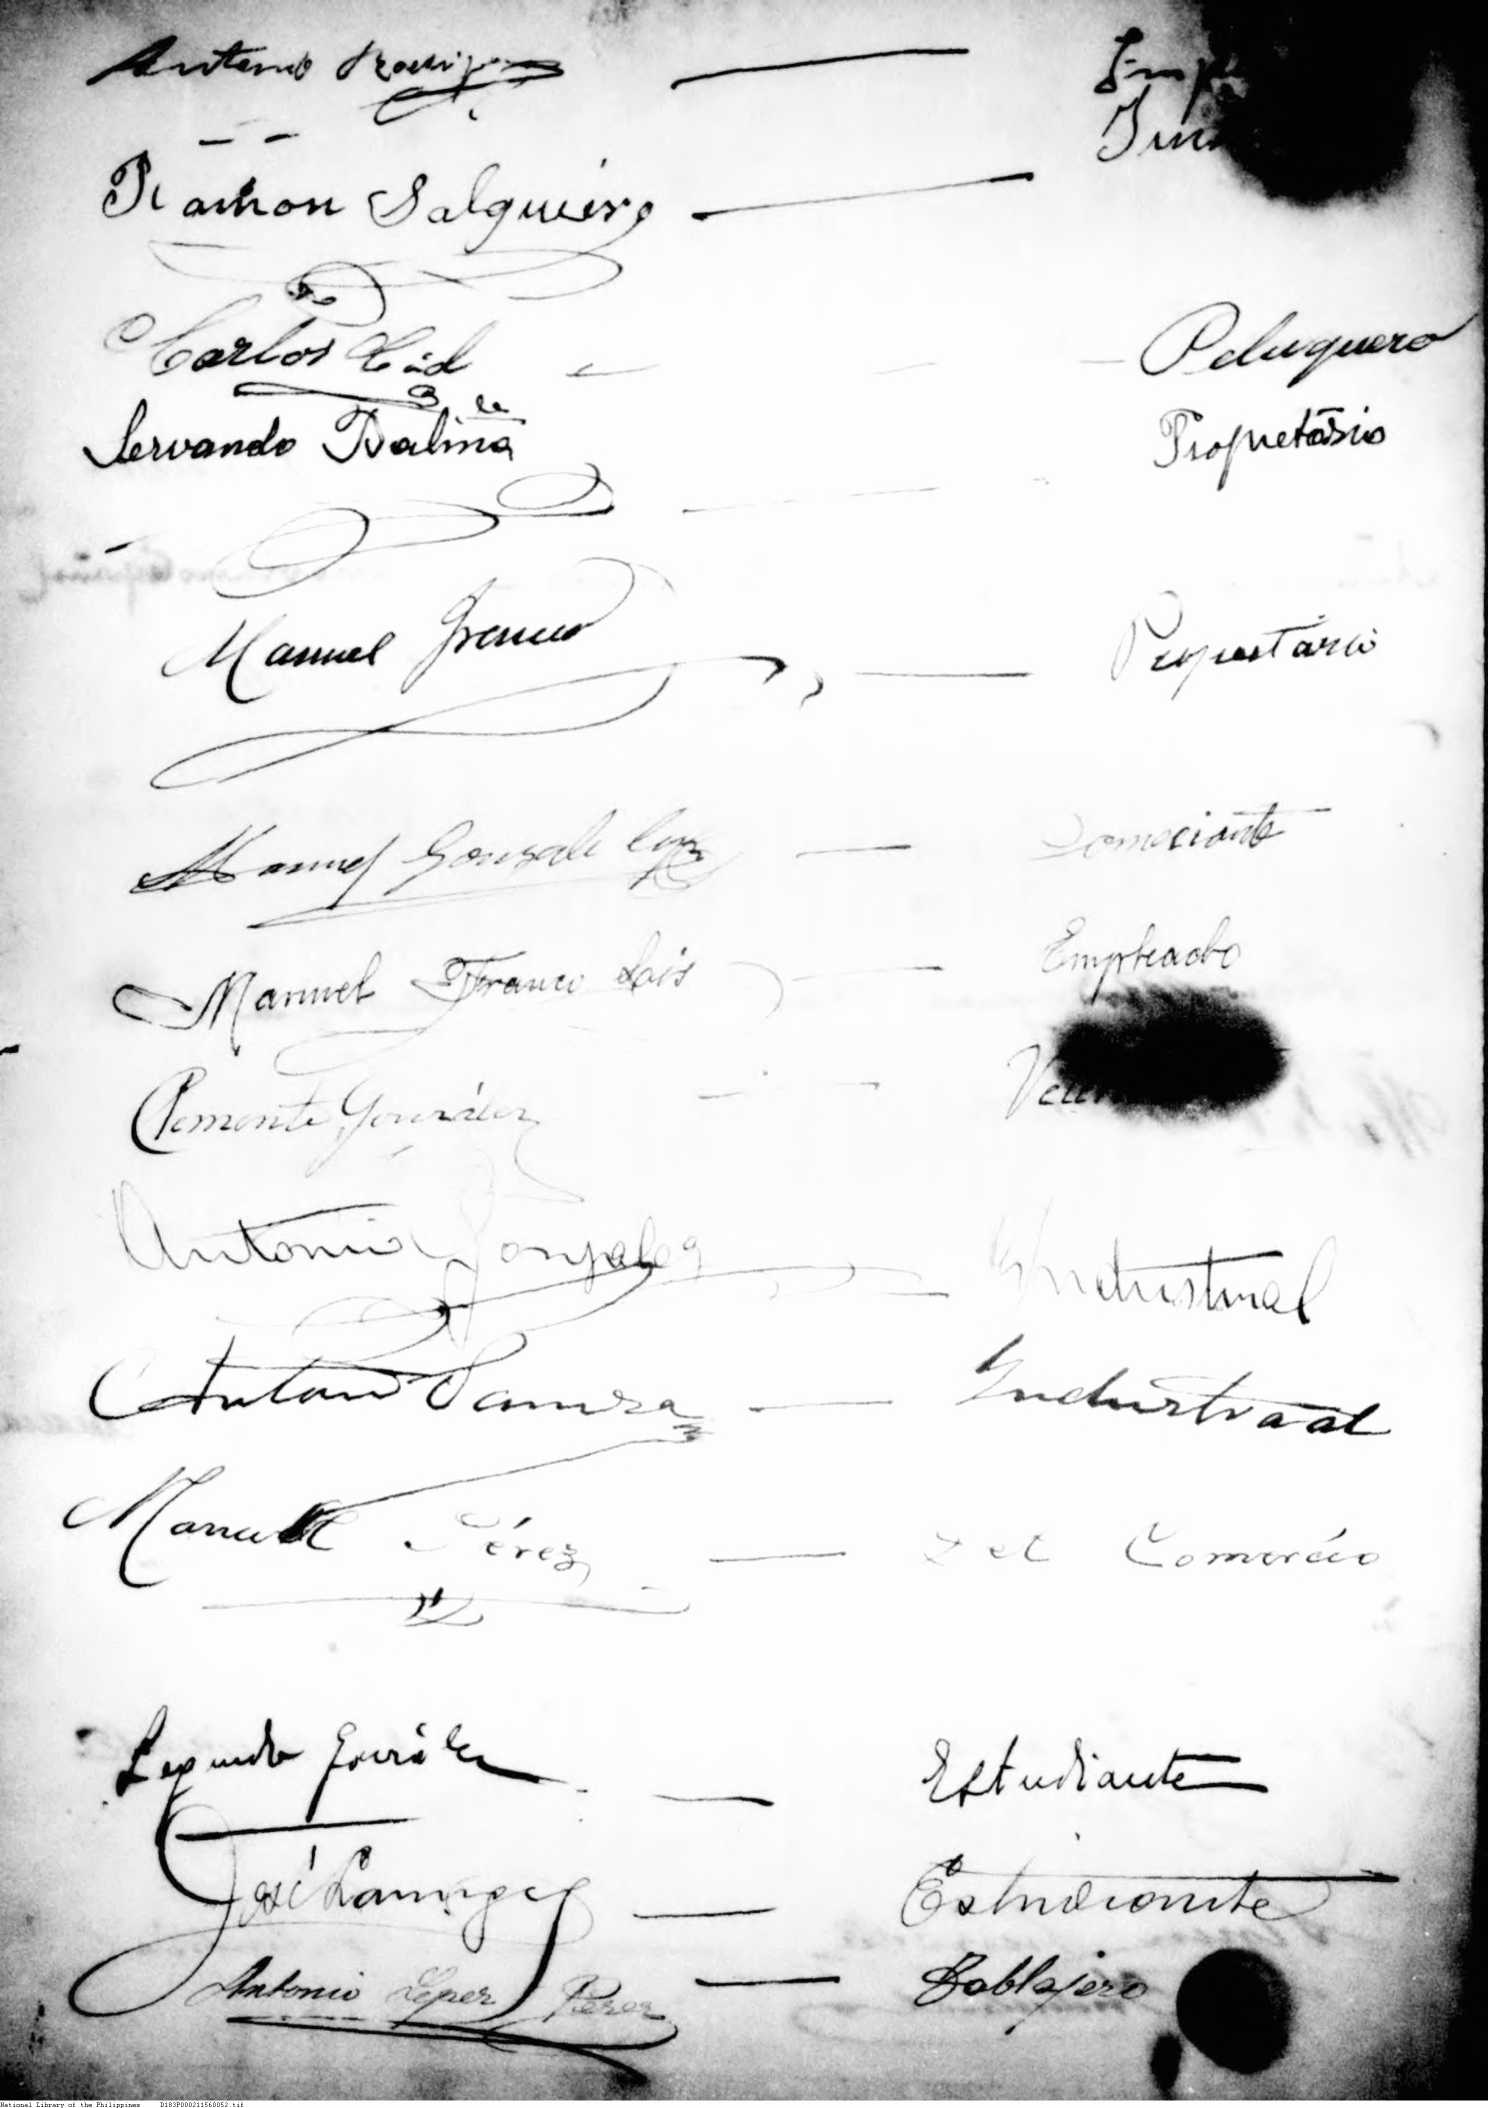 Antonio Rodrigue
Ramon Salgueiro
Carlos Cid Peluquero
Servando Daliña Propietario
Manuel Franco Propietario
Manuel Gonzale Comerciante
Manuel Franco Lois Empleado
Clemente González
Antonio Gonzalez Industrial
Antonio Industrial
Manuel Pérez Del Comercio
Segundo González Estudiante
José Estudiante
Antonio Lopez Perez Tablajero
National Library of the Philippines D183P000211560052.tif